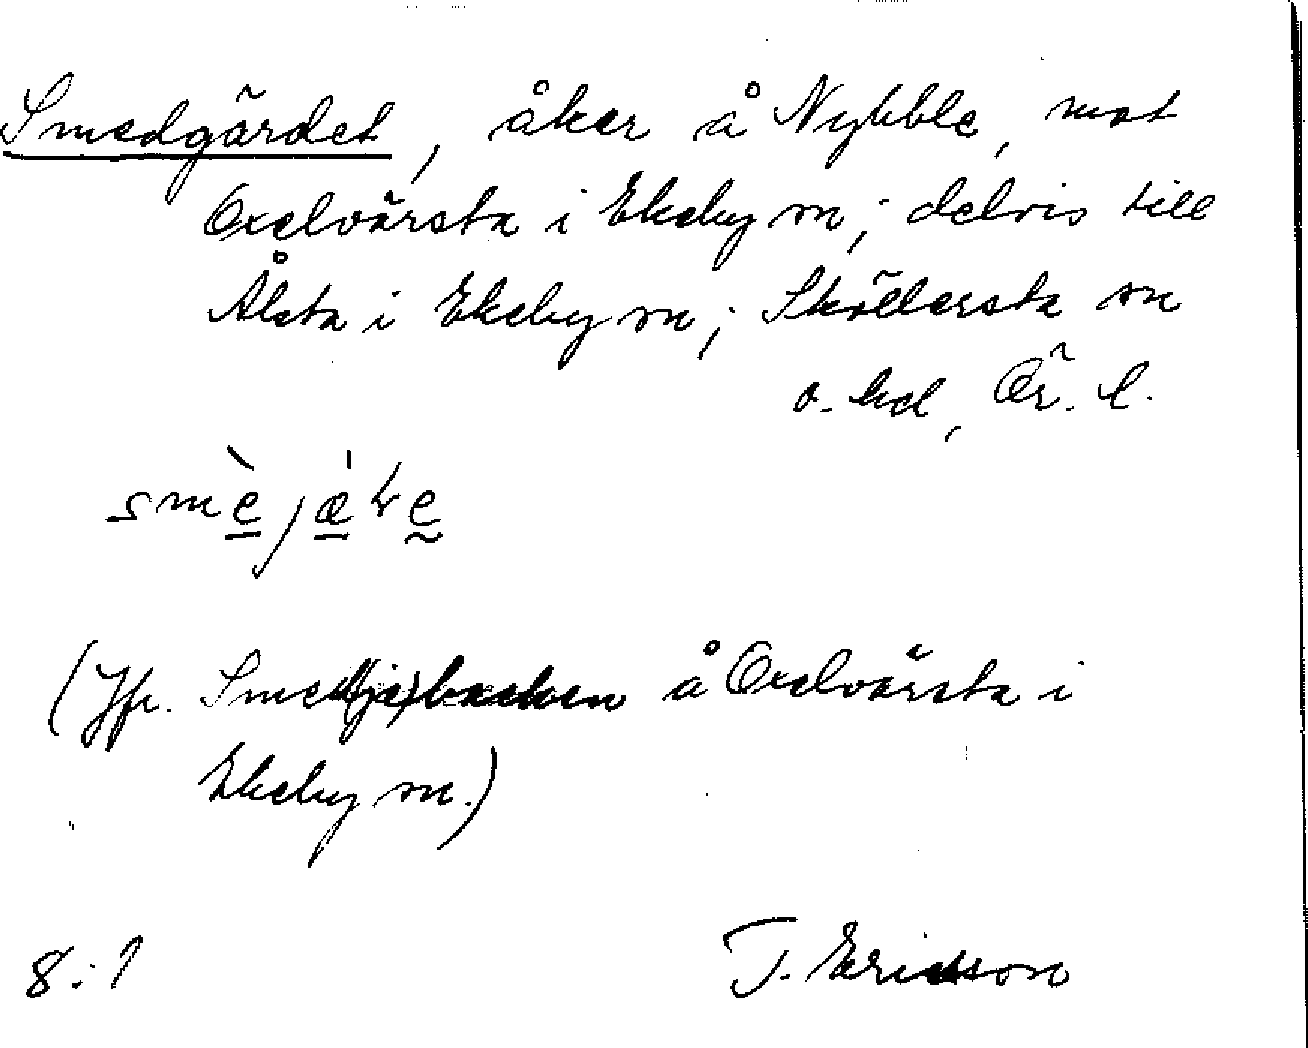 Smedgärdet, åker å Nybble, mot
Oxelvärsta i Ekeby sn; delvis till
Ålsta i Ekeby sn; Sköllersta sn
o. hd, Ör. l.
smèjæ̀ɽe
(Jfr. Smed(je)backen å Oxelvärsta i
Ekeby sn.)
8:1
T. Ericsson